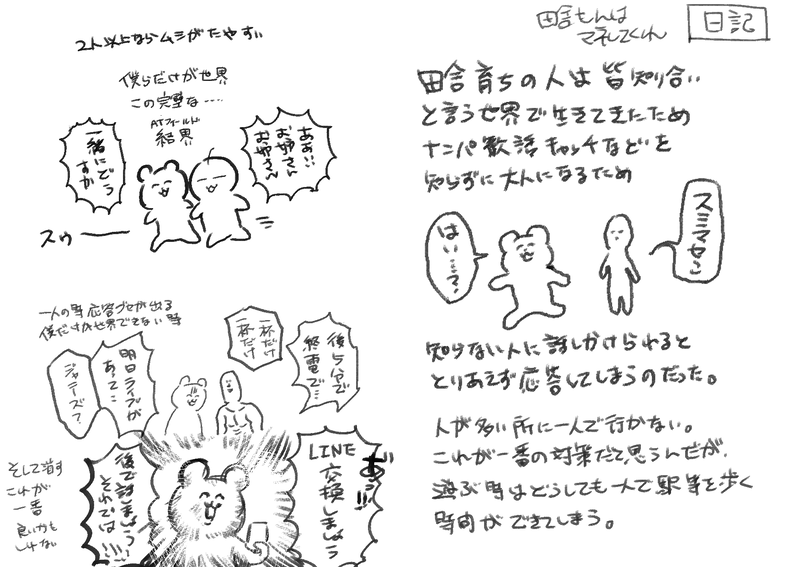 日記
田舎もんは
マネしてくれ
田舎育ちの人は皆知り合い
と言う世界で生きてきたため
ナンパ 歓誘 キャッチなどを
知らずに大人になるため
スミマセン
はい…?
知らない人に話しかけられると
とりあえず応答してしまうのだった。
人が多い所に一人で行かない。
これが一番の対策だと思うんだが、
遊ぶ時はどうしても一人で駅等を歩く
時間ができてしまう。
2人以上ならムシがたやすい
僕らだけが世界
この完璧な....
ATフィールド
結界
ああ!!
お姉さん
お姉さん
一緒にどう
すか
スゥ――
一人の時応答グセが出る
僕だけが世界できない時
後5分で
終電で…
一杯だけ
一杯だけ
明日ライブが
あって…
ジャニーズ?
あ゛!!
LINE
交換しましょう
後で話しましょう!
それでは!!!!
そして消す
これが
一番
良いかも
しれない